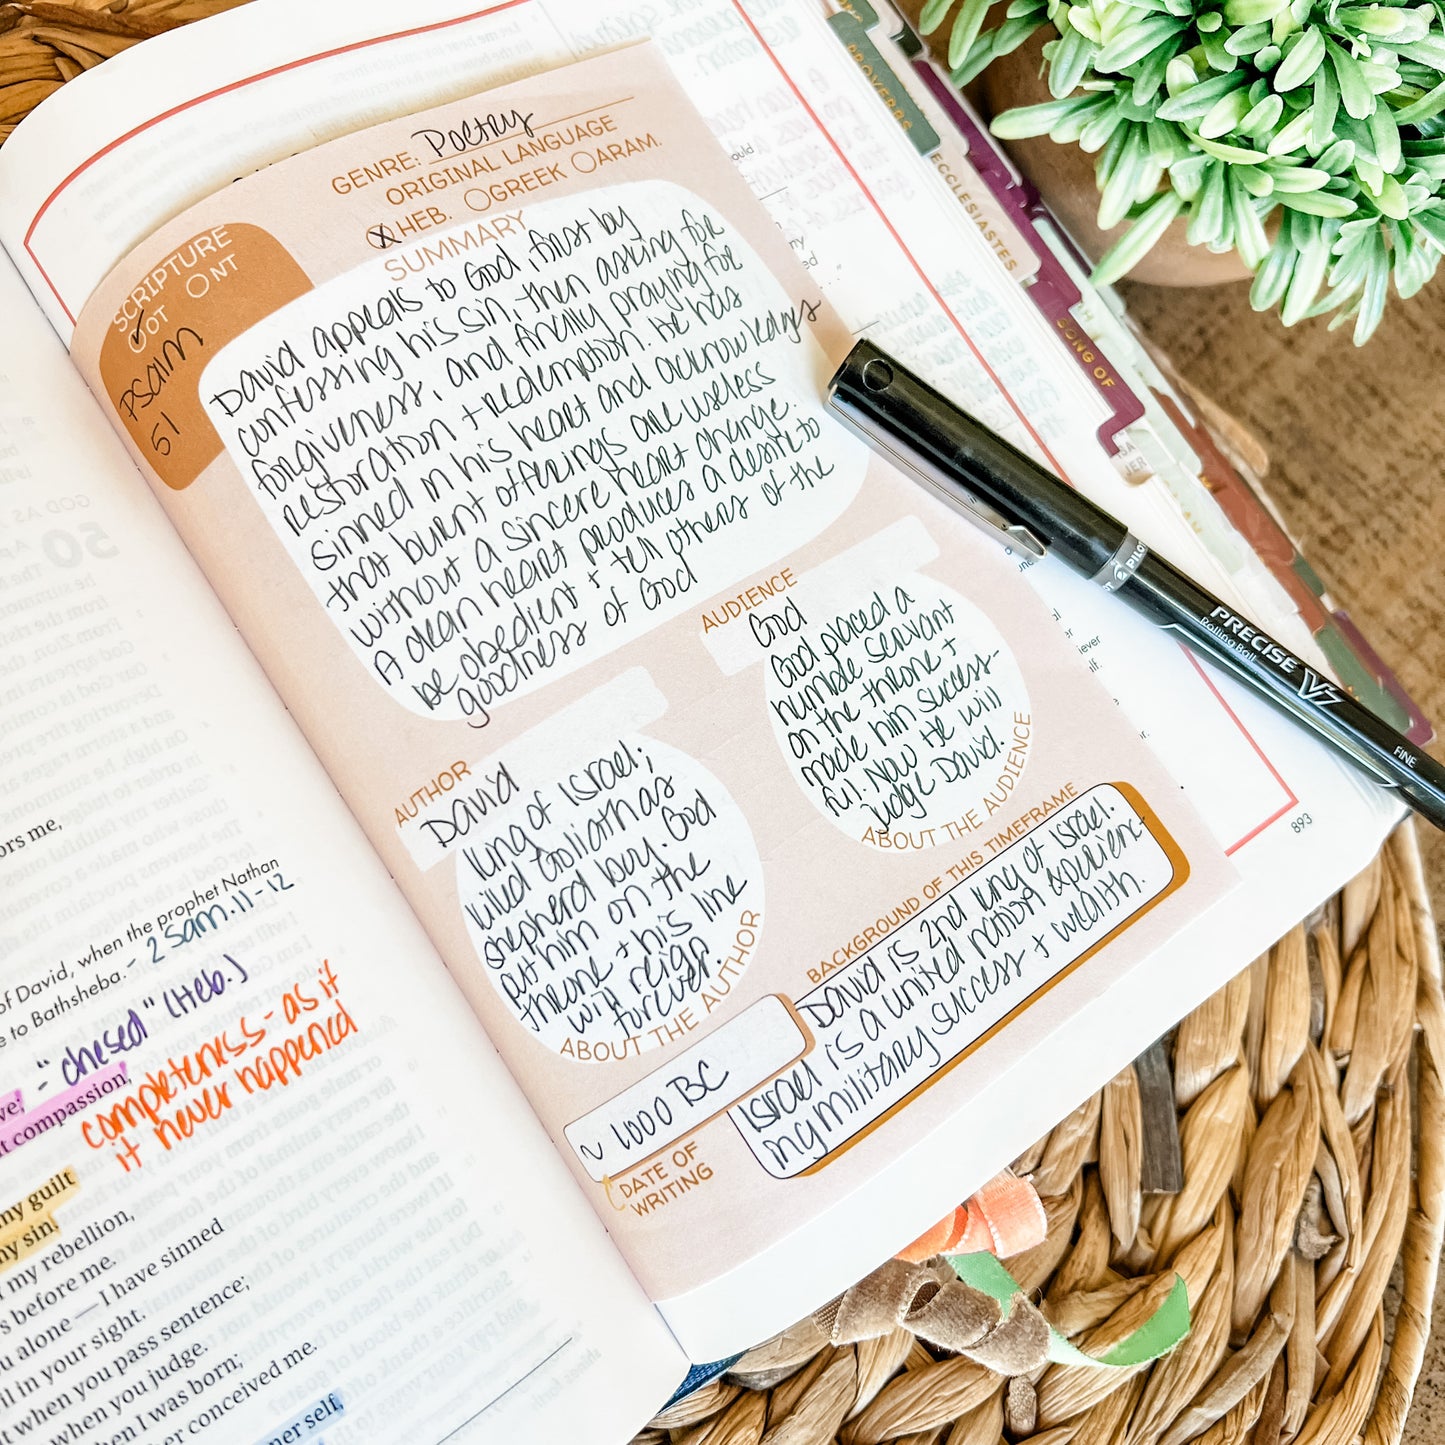 GENRE: Poetry
ORIGINAL LANGUAGE
HEB. GREEK ARAM.
SCRIPTURE
OT NT
Psalm
51
SUMMARY
David appeals to God, first by
confessing his sin, then asking for
forgiveness, and finally praying for
restoration + redemption. He has
sinned in his heart and acknowledges
that burnt offerings are useless
without a sincere heart change.
A clean heart produces a desire to
be obedient + tell others of the
goodness of God
AUDIENCE
God
God placed a
humble servant
on the throne +
made him success-
ful. Now He will
judge David.
ABOUT THE AUDIENCE
AUTHOR
David
king of Israel;
killed Goliath as
shepherd boy. God
put him on the
throne + his line
will reign
forever.
ABOUT THE AUTHOR
BACKGROUND OF THIS TIMEFRAME
David is 2nd king of Israel.
Israel is a united nation experienc-
ing military success + wealth.
~ 1000 BC
DATE OF
WRITING
ors me,
of David, when the prophet Nathan
e to Bathsheba. - 2 Sam. 11-12
- "chesed" (Heb.)
ve;
t compassion,
completeness - as if
it never happened
my guilt
my sin.
my rebellion,
s before me.
u alone — I have sinned
il in your sight.
t when you pass sentence;
when you judge.
hen I was born;
her conceived me.
ner self,
50
PROVERBS
ECCLESIASTES
SONG OF
893
PILOT
PRECISE V7
Rolling Ball
FINE